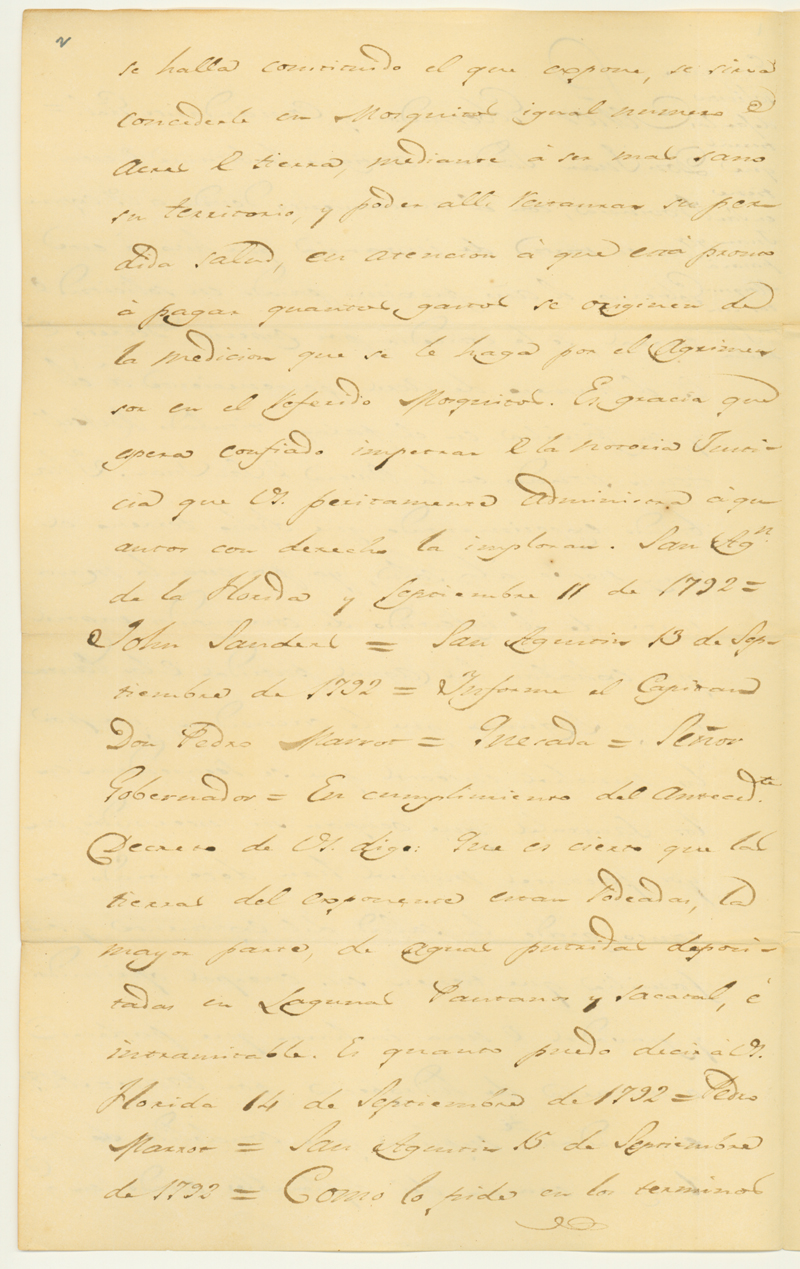 2
se halla constituido el que expone, se sirva
concederle en Mosquitos igual numero de
Acres de tierra, mediante á ser mas sano
su territorio, y poder alli restaurar su per-
dida salud, en atencion á que está pronto
á pagar quantos gastos se originen de
la medicion que se le haga por el Agrimen
sor en el referido Mosquitos. Es gracia que
espera confiado impetrar de la notoria Justi-
cia que VS. peritamente administra á qu
antos con derecho la imploran. San Agn.
de la Florida y Septiembre 11 de 1792 =
John Sanders = San Agustin 13 de Sep-
tiembre de 1792 = Informe el Capitan
Don Pedro Marrot = Quesada = Señor
Gobernador = En cumplimiento del Anteced.te
Decreto de VS. digo: Que es cierto que las
tierras del exponente estan rodeadas, la
mayor parte, de aguas putridas deposi-
tadas en Lagunas Pantanos y sacatal, é
intransitable. Es quanto puedo decir á VS.
Florida 14 de Septiembre de 1792 = Pedro
Marrot = San Agustin 15 de Septiembre
de 1792 = Como lo pide en los terminos